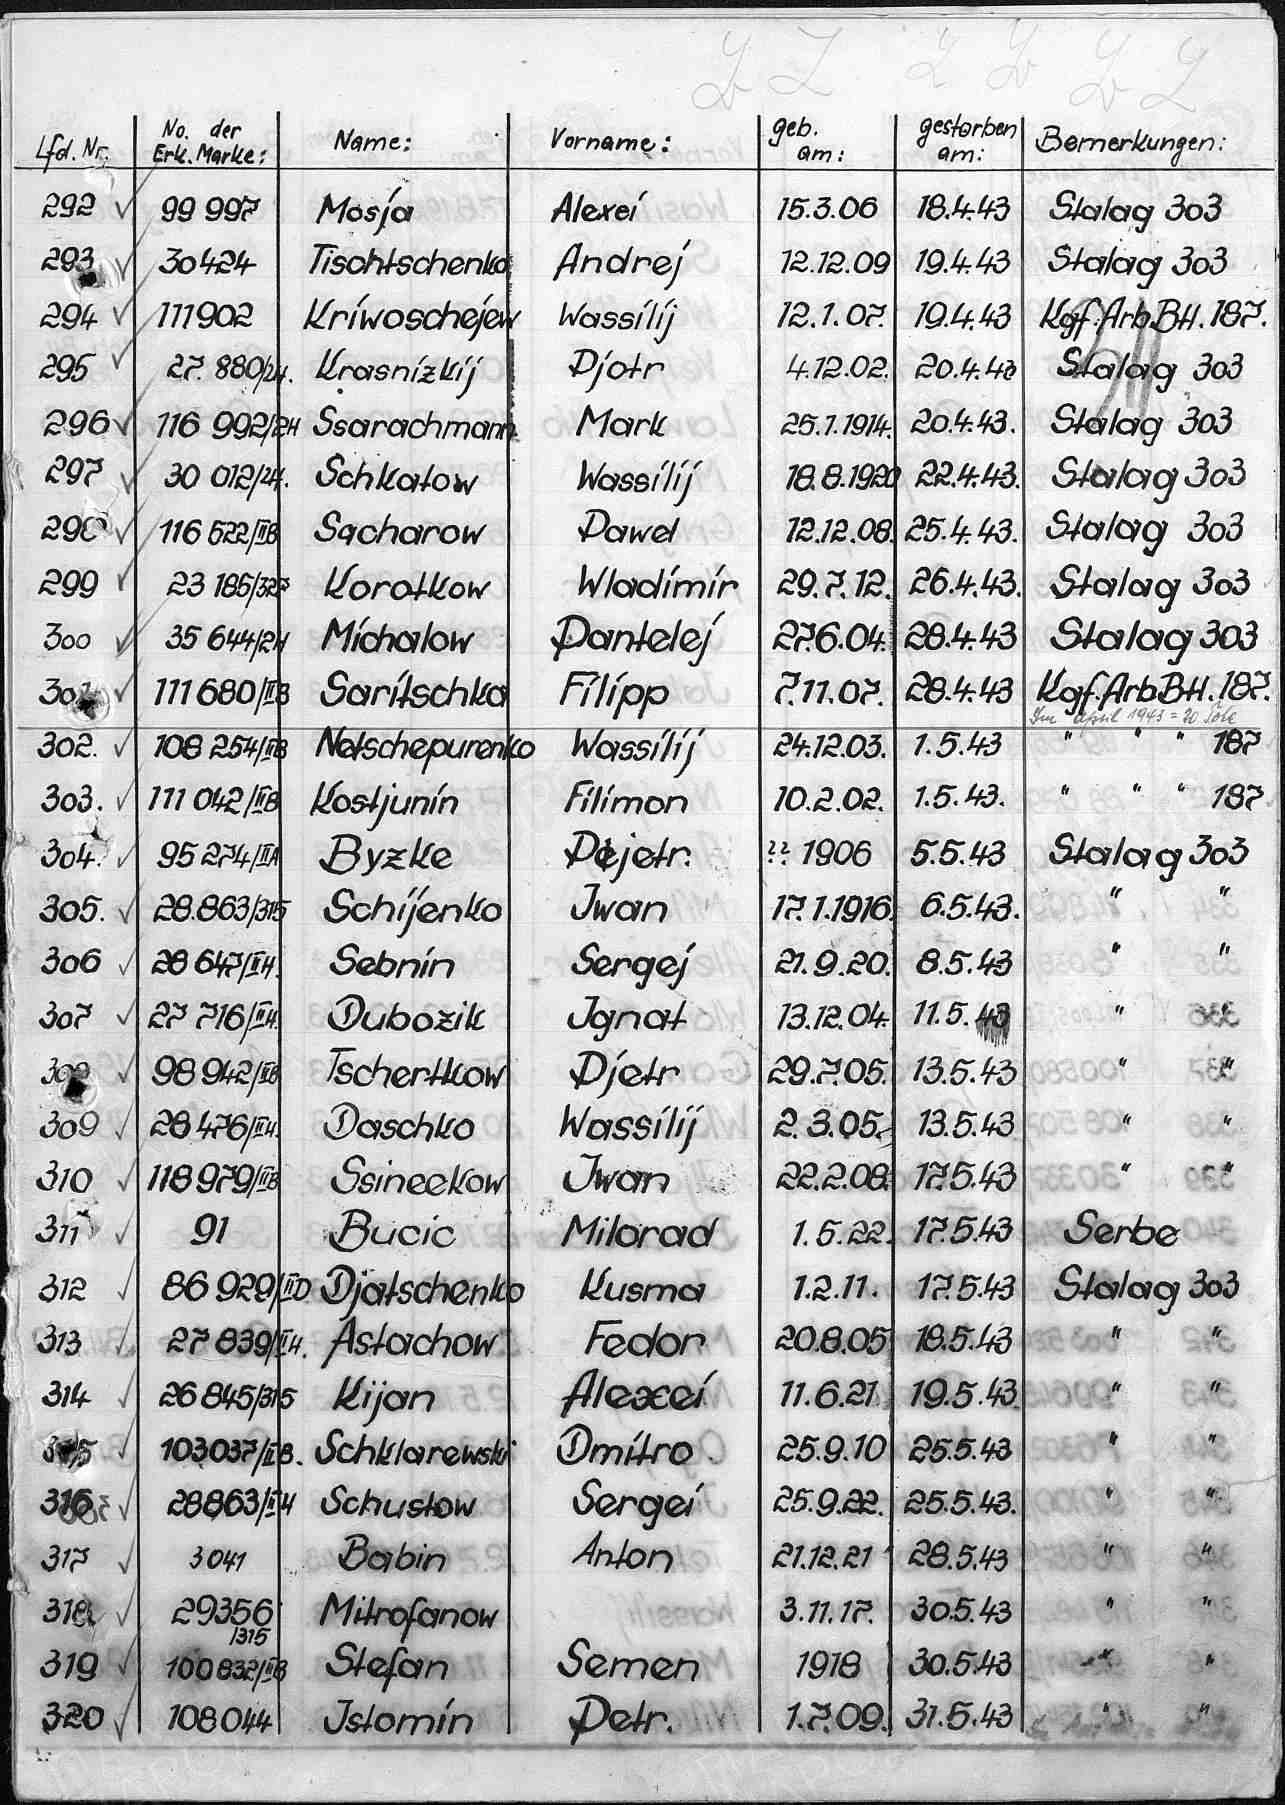 Lfd. Nr. No. der Erk. Marke: Name: Vorname: geb. am: gestorben am: Bemerkungen:
292 99 997 Mosja Alexei 15.3.06 18.4.43 Stalag 303
293 30424 Tischtschenko Andrej 12.12.09 19.4.43 Stalag 303
294 111902 Kriwoschejew Wassilij 12.1.07. 19.4.43 Kgf.Arb.Btl.187.
295 27.880/24. Krasnizkij Pjotr 4.12.02. 20.4.43 Stalag 303
296 116 992/24 Ssarachmann Mark 25.1.1914. 20.4.43. Stalag 303
297 30 012/24. Schkatow Wassilij 18.8.1920 22.4.43. Stalag 303
298 116 522/IIB Sacharow Pawel 12.12.08. 25.4.43. Stalag 303
299 23 185/327 Korotkow Wladimir 29.7.12. 26.4.43. Stalag 303
300 35 644/24 Michalow Pantelej 27.6.04. 28.4.43 Stalag 303
301 111 680/IIB Saritschka Filipp 7.11.07. 28.4.43 Kgf.Arb.Btl.187.
Im April 1943 = 20 Tote
302. 108 254/IIB Netschepurenko Wassilij 24.12.03. 1.5.43 " " " 187
303. 111 042/IIB Kostjunin Filimon 10.2.02. 1.5.43. " " " 187
304. 95 274/IIA Byzke Pjetr. ?? 1906 5.5.43 Stalag 303
305. 28.863/315 Schijenko Iwan 17.1.1916. 6.5.43. " "
306 28 647/II4. Sebnin Sergej 21.9.20. 8.5.43 " "
307 27 716/II4. Dubozik Ignat 13.12.04. 11.5.43 " "
308 98 942/IIB Tschertkow Pjetr 29.7.05. 13.5.43 " "
309 28 476/II4. Daschko Wassilij 2.3.05. 13.5.43 " "
310 118 979/IIB Ssineekow Iwan 22.2.08. 17.5.43 " "
311 91 Bucic Milorad 1.5.22. 17.5.43 Serbe
312 86 929/IID Djatschenko Kusma 1.2.11. 17.5.43 Stalag 303
313 27 839/II4. Astachow Fedor 20.8.05 18.5.43 " "
314 26 845/315 Kijan Alexei 11.6.21 19.5.43 " "
315 103037/IIB. Schklarewski Dmitro 25.9.10 25.5.43 " "
316 28863/II4 Schustow Sergei 25.9.22. 25.5.43. " "
317 3041 Babin Anton 21.12.21 28.5.43 " "
318 29356/315 Mitrofanow 3.11.17. 30.5.43 " "
319 100832/IIB Stefan Semen 1918 30.5.43 " "
320 108044 Istomin Petr. 1.7.09. 31.5.43 " "